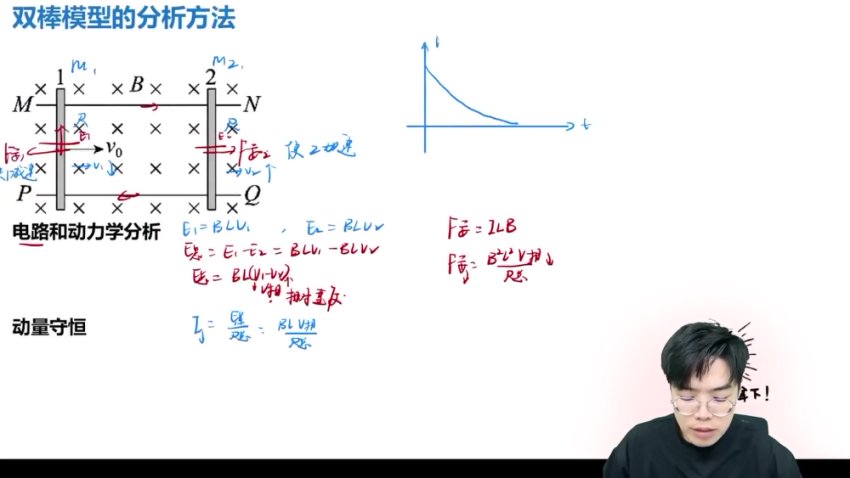 双棒模型的分析方法
M₁
M₂
1
B
2
M
N
R
R
E₁
v₀
F安₁
F安₂
使2加速
→v₁↓
→v₂↑
P
Q
I
t
电路和动力学分析
E₁=BLV₁ , E₂=BLV₂
E总=E₁-E₂=BLV₁-BLV₂
E总=BL(V₁-V₂)
V相
相对速度
F安=ILB
F安↓=B²L²V相↓/R总
动量守恒
I↓=E总/R总=BLV相/R总
下!